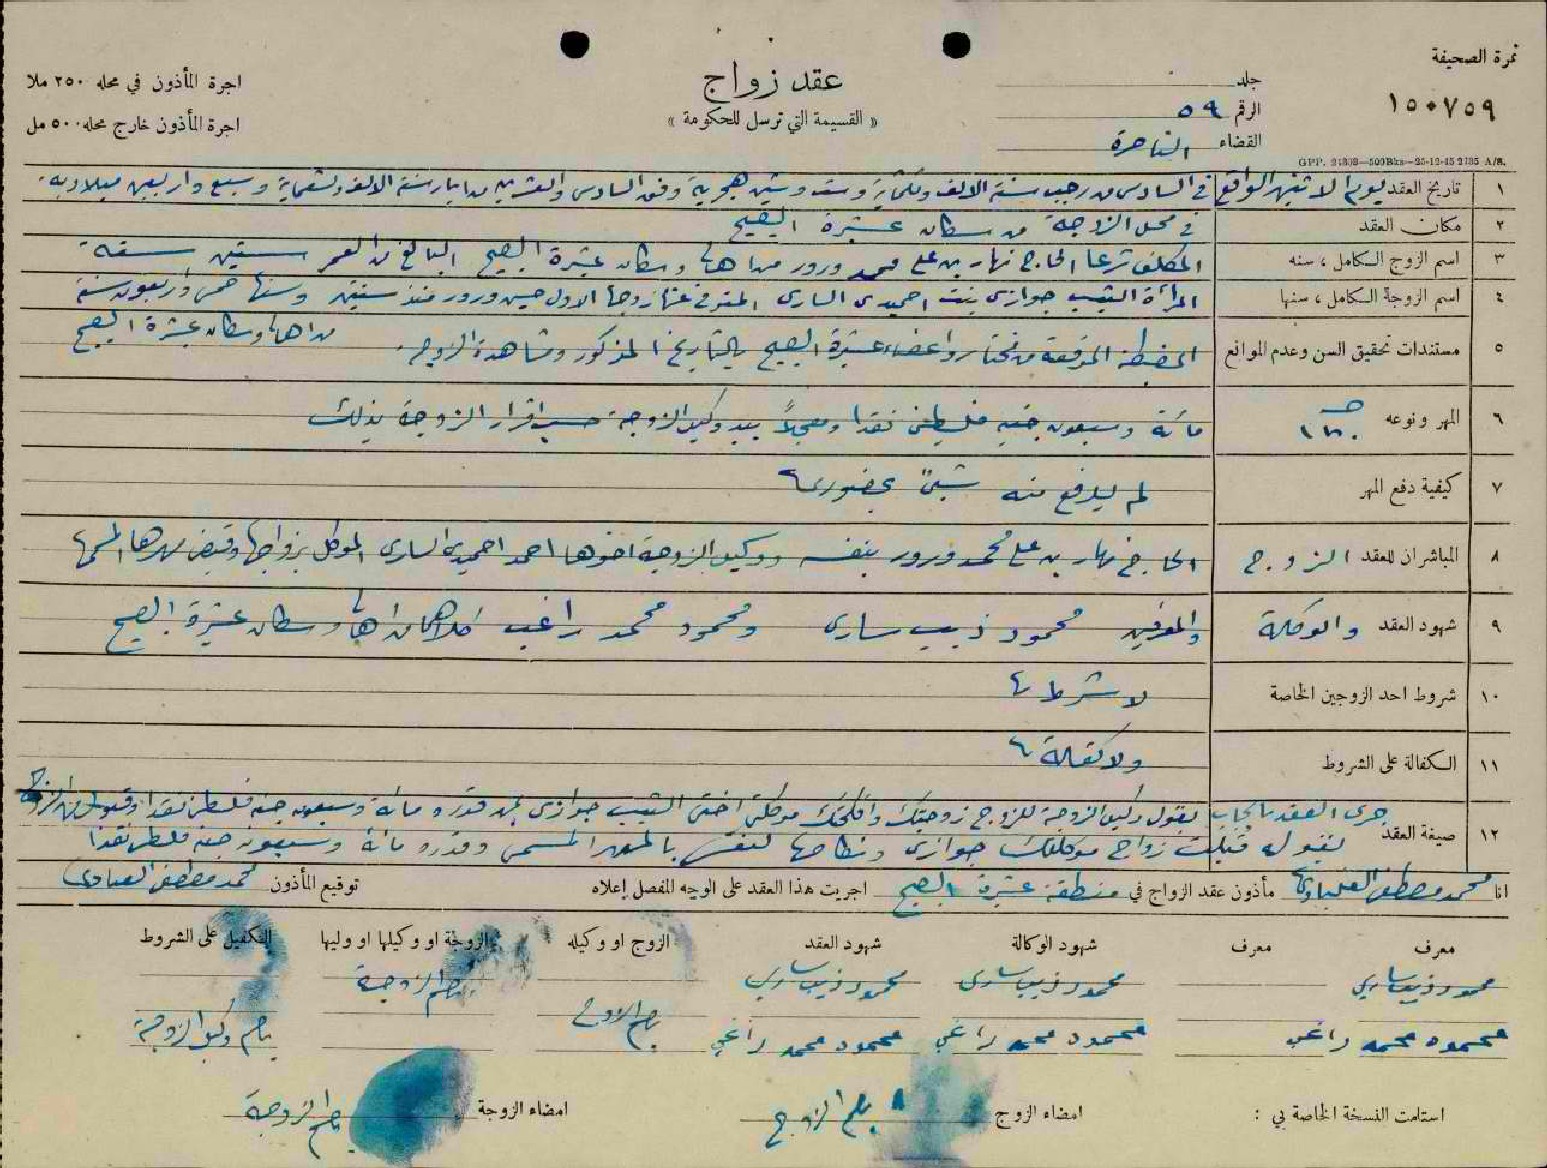 نمرة الصحيفة
١٥٠٧٥٩
جلد
الرقم ٥٩
القضاء الناصرة
عقد زواج
« القسيمة التي ترسل للحكومة »
اجرة المأذون في محله ٢٥٠ ملا
اجرة المأذون خارج محله ٥٠٠ مل
GPP. 21303—500 Bks—25-12-45 2135 A/S.
١ تاريخ العقد يوم الاثنين الواقع في السادس من رجب سنة الالف وثلثماية وست وستين هجرية وفق السادس والعشرين من ايار سنة الالف وتسعماية وسبع واربعين ميلادية
٢ مكان العقد في محل الزوجة من سكان عشيرة الصبيح
٣ اسم الزوج الكامل ، سنه المكلف شرعا الحاج نهار بن علي محمد ورور من اهالي وسكان عشيرة الصبيح البالغ من العمر ستين سنة
٤ اسم الزوجة الكامل ، سنها المرأة الثيب جوازي بنت احميدي الساري المتوفى عنها زوجها الاول حسين ورور منذ سنتين وسنها خمس واربعون سنة
من اهالي وسكان عشيرة الصبيح
٥ مستندات تحقيق السن وعدم الموانع المضبطة المرفقة من مختار واعضاء عشيرة الصبيح بالتاريخ المذكور ومشاهدة الزوجة
٦ المهر ونوعه مائة وسبعون جنيه فلسطيني نقدا ومعجلاً بيد وكيل الزوجة حسب اقرار الزوجة بذلك
٧ كيفية دفع المهر لم يدفع منه شيئ بحضوري
٨ المباشران للعقد الزوج الحاج نهار بن علي محمد ورور بنفسه ووكيل الزوجة اخوها احمد احميدي الساري الموكل بزواجها وقبض مهرها المسمى
٩ شهود العقد والوكالة والمعرفين محمود ذيب ساري ومحمود محمد راغب كلاهما من اهالي وسكان عشيرة الصبيح
١٠ شروط احد الزوجين الخاصة لا شرط
١١ الكفالة على الشروط ولا كفالة
١٢ صيغة العقد جرى العقد بايجاب بقول وكيل الزوجة للزوج زوجتك وانكحتك موكلتي اختي الثيب جوازي بمهر قدره مائة وسبعون جنيه فلسطيني نقدا وقبول من الزوج
بقوله قبلت زواج موكلتك جوازي ونكاحها لنفسي بالمهر المسمى وقدره مائة وسبعون جنيه فلسطيني نقدا
انا محمد مصطفى العبادي مأذون عقد الزواج في منطقة عشيرة الصبيح اجريت هذا العقد على الوجه المفصل اعلاه توقيع المأذون محمد مصطفى العبادي
معرف معرف شهود الوكالة شهود العقد الزوج او وكيله الزوجة او وكيلها او وليها الكفيل على الشروط
محمود ذيب ساري محمود ذيب ساري محمود ذيب ساري بصم الزوجة
محمود محمد راغب محمود محمد راغب محمود محمد راغب بصم الزوج بصم وكيل الزوجة
استلمت النسخة الخاصة بي : امضاء الزوج بصم الزوج امضاء الزوجة بصم الزوجة